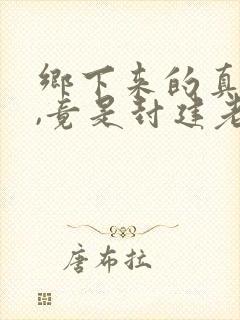 鄉下来的真
,竟是封建老
唐布拉